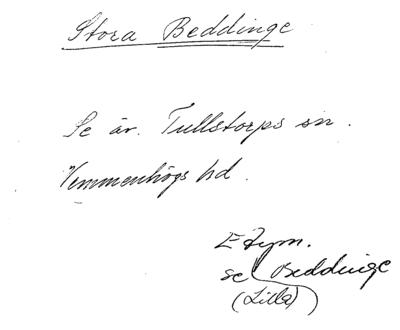 Stora Beddinge
Se äv. Tullstorps sn.
Vemmenhögs hd.
Etym.
se Beddinge
(Lilla)